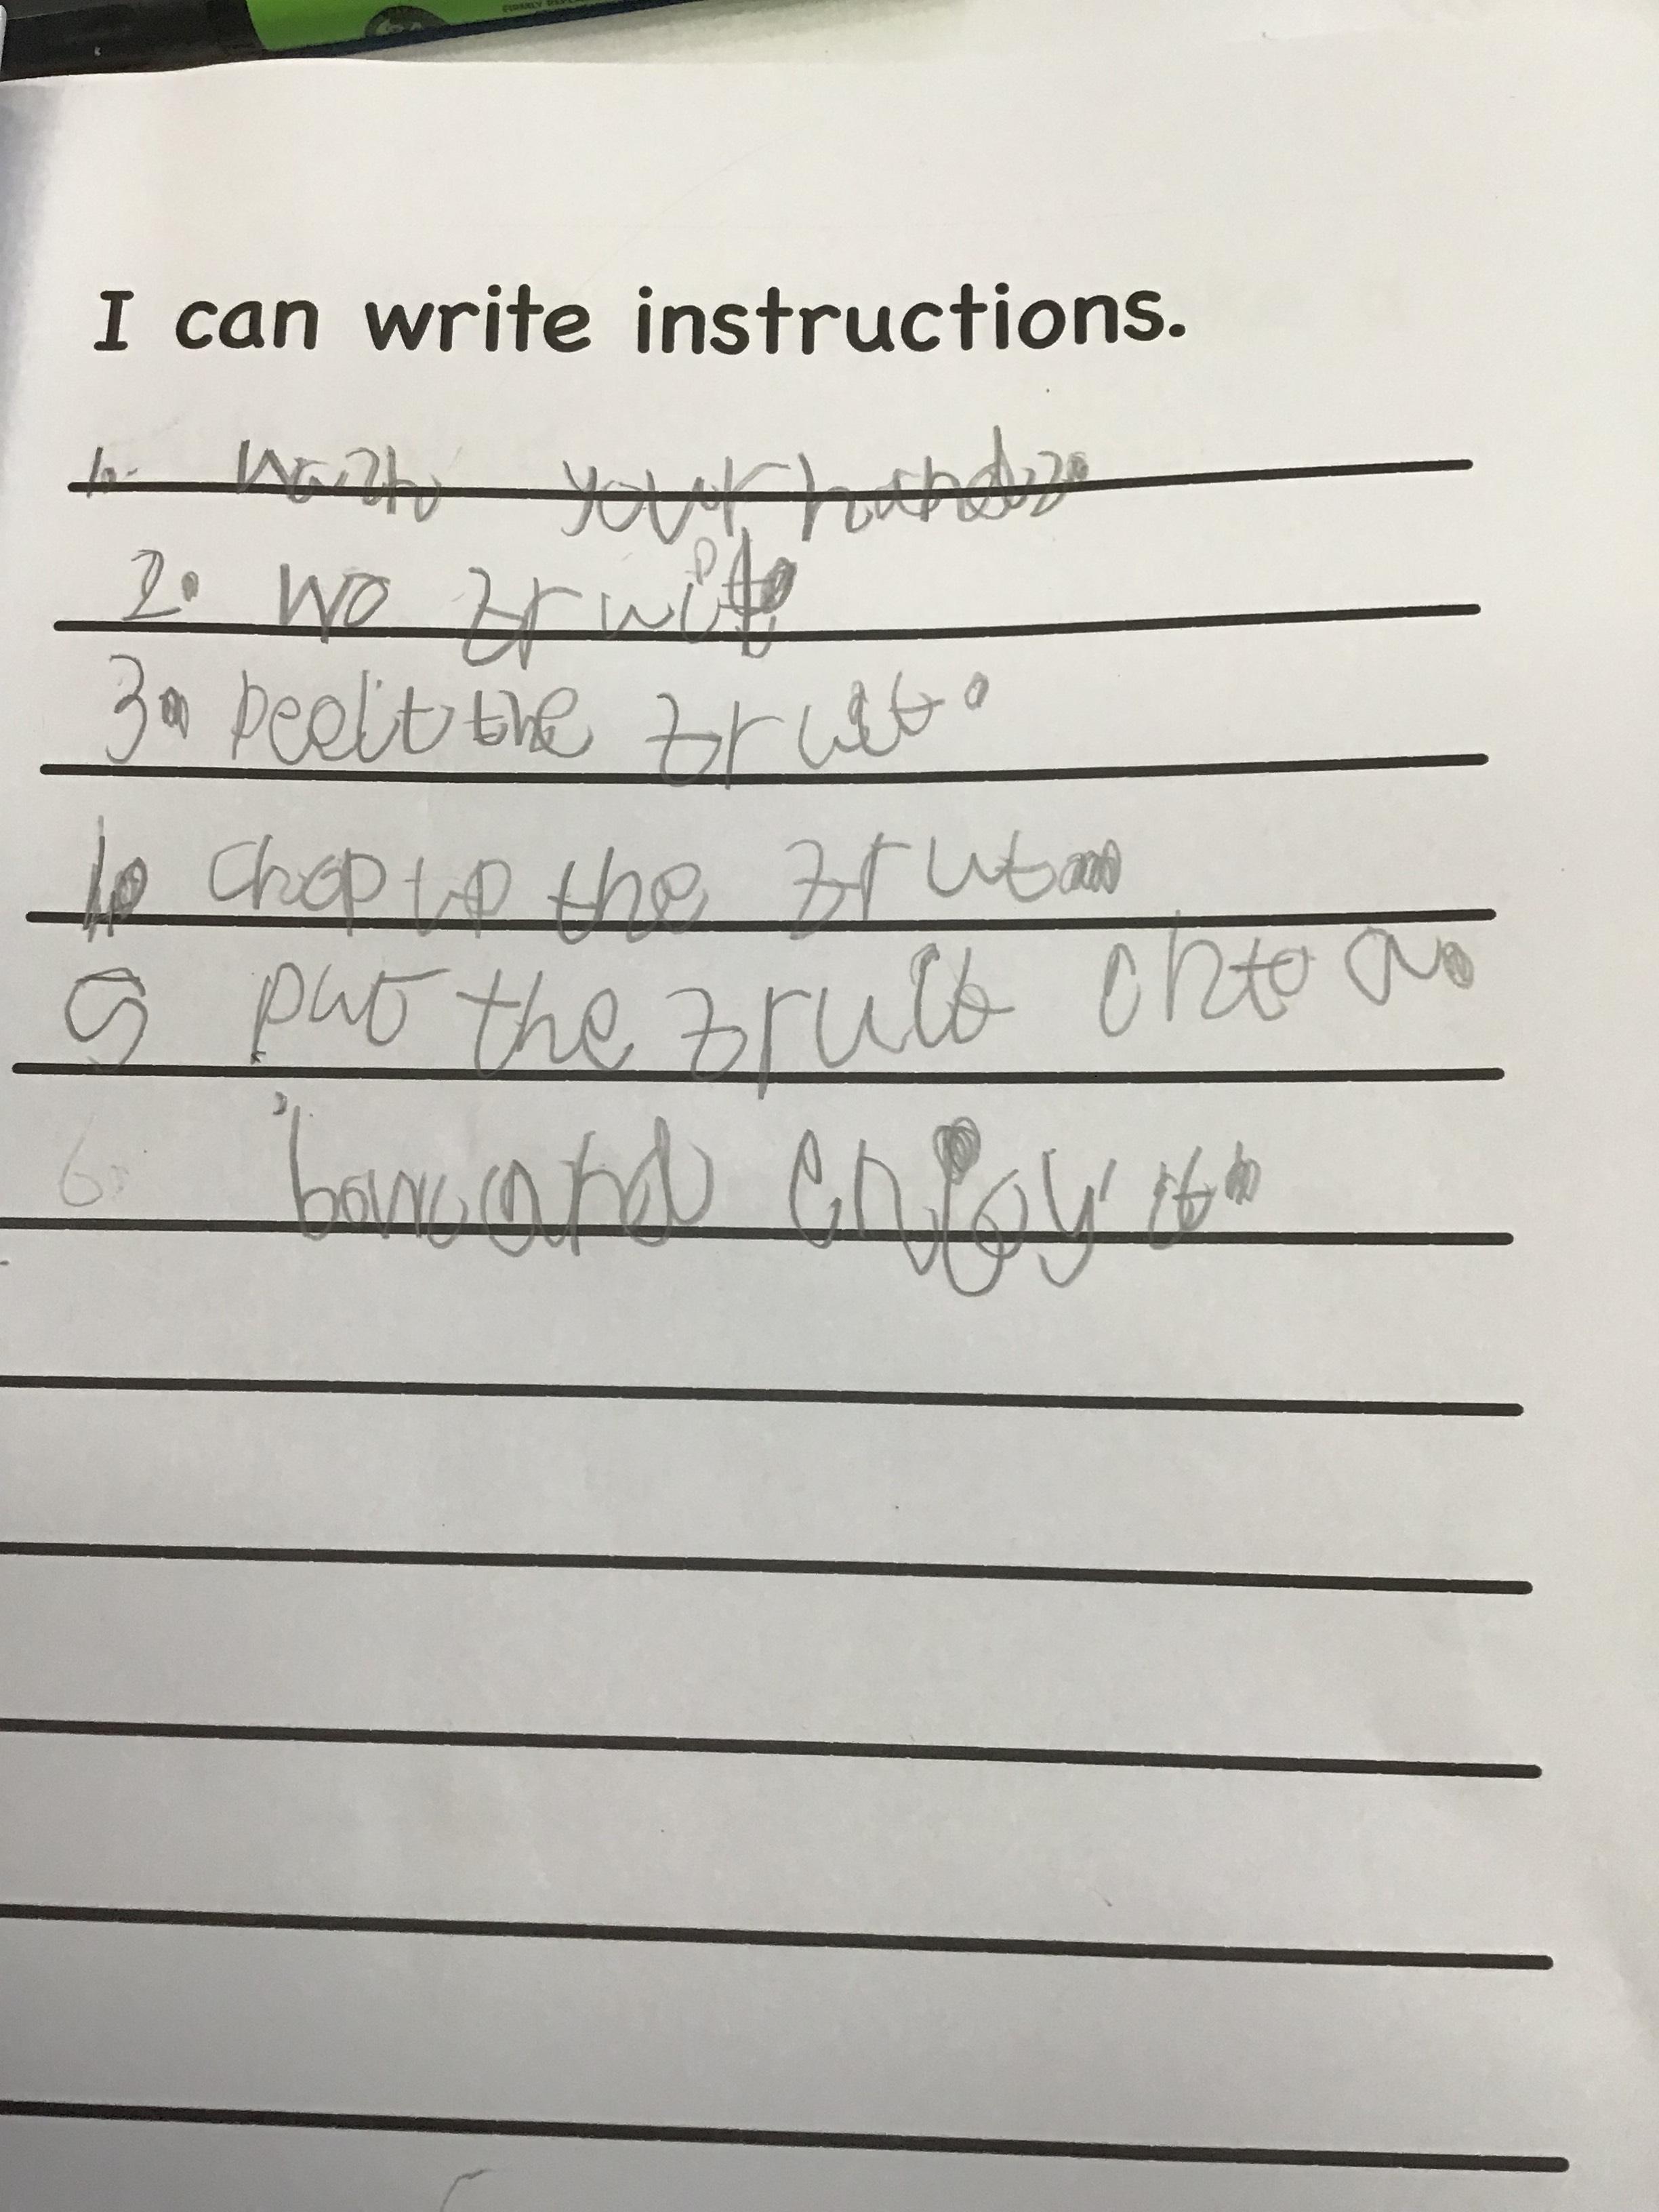 I can write instructions.
1. Wash your hands.
2. wo fruit.
3. peelit the fruit.
4. Chop up the frut.
5 put the fruit onto a
6. bowl and enjoy it.